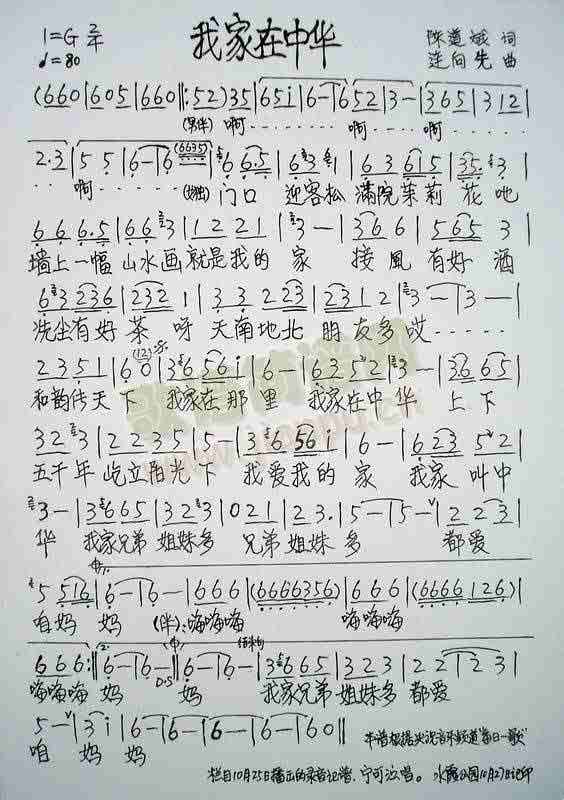 1=G 2/4 我家在中华 陈道斌 词
♩=80 连向先 曲
(660|605|660‖:52)35|65i|6-|652|3-|365|312|
(男伴) 啊......... 啊.... 啊.......
2·3|55|6-|6(6635)|665|631|63615|353|
.... 啊...... (独) 门口 迎客松 满院茉莉 花吔
666·5|663|1221|3-|366|565 3|
墙上一幅 山水画 就是我的 家 接風 有好 酒
63236|2321|33223|2312|3-|3-|
洗尘有好 茶呀 天南地北 朋友多哎.....
2351|60|3656i|6-|6352|3-|3665|
和韵传天下 我家在那里 我家在中华 上下
323|2235|5-|3656i|6-|62352|
五千年 屹立阳光下 我爱我的家 我家 叫中
3-|3665|323|021|23.|5-|5-|223|
华 我家兄弟 姐妹多 兄弟 姐妹 多 都爱
5516|6-|6-|666|(6666356)|666|(6666126)|
咱妈 妈 (伴):嗨嗨嗨 嗨嗨嗨
666:‖6-|6-‖6-|6-|3665|323|22|23|
嗨嗨嗨 妈 D.S 妈 我家兄弟 姐妹多 都爱
5-|3i|6-|6-|6-|6-|60‖
咱 妈 妈
本谱根据央视音乐频道"每日一歌"
栏目10月25日播出的录音记谱,宁可汶唱。水露公园10月27日记印